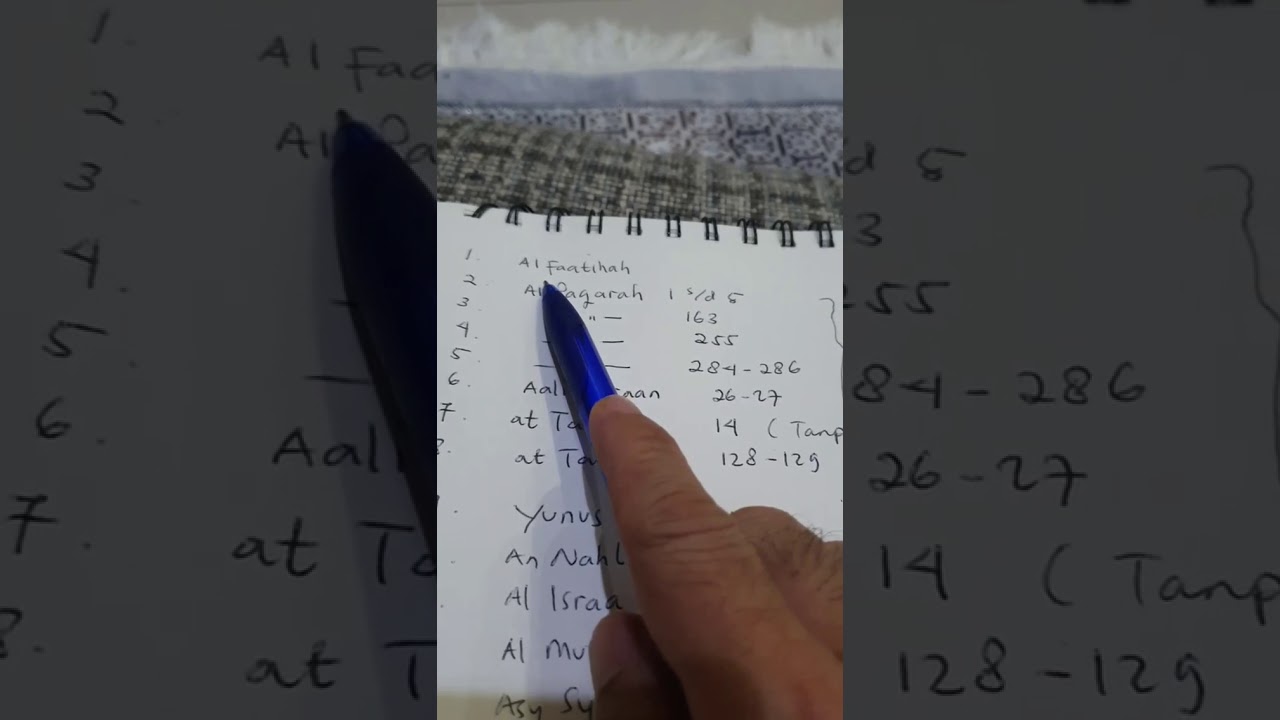 1. Al Faatihah
2. Al Baqarah 1 s/d 5
3. " — 163
4. — — 255
5. — — 284 - 286
6. Aali 26 - 27
7. at 14 ( Tanp
8. at 128 - 129
Yunus
An Nahl
Al Israa
Al
Asy